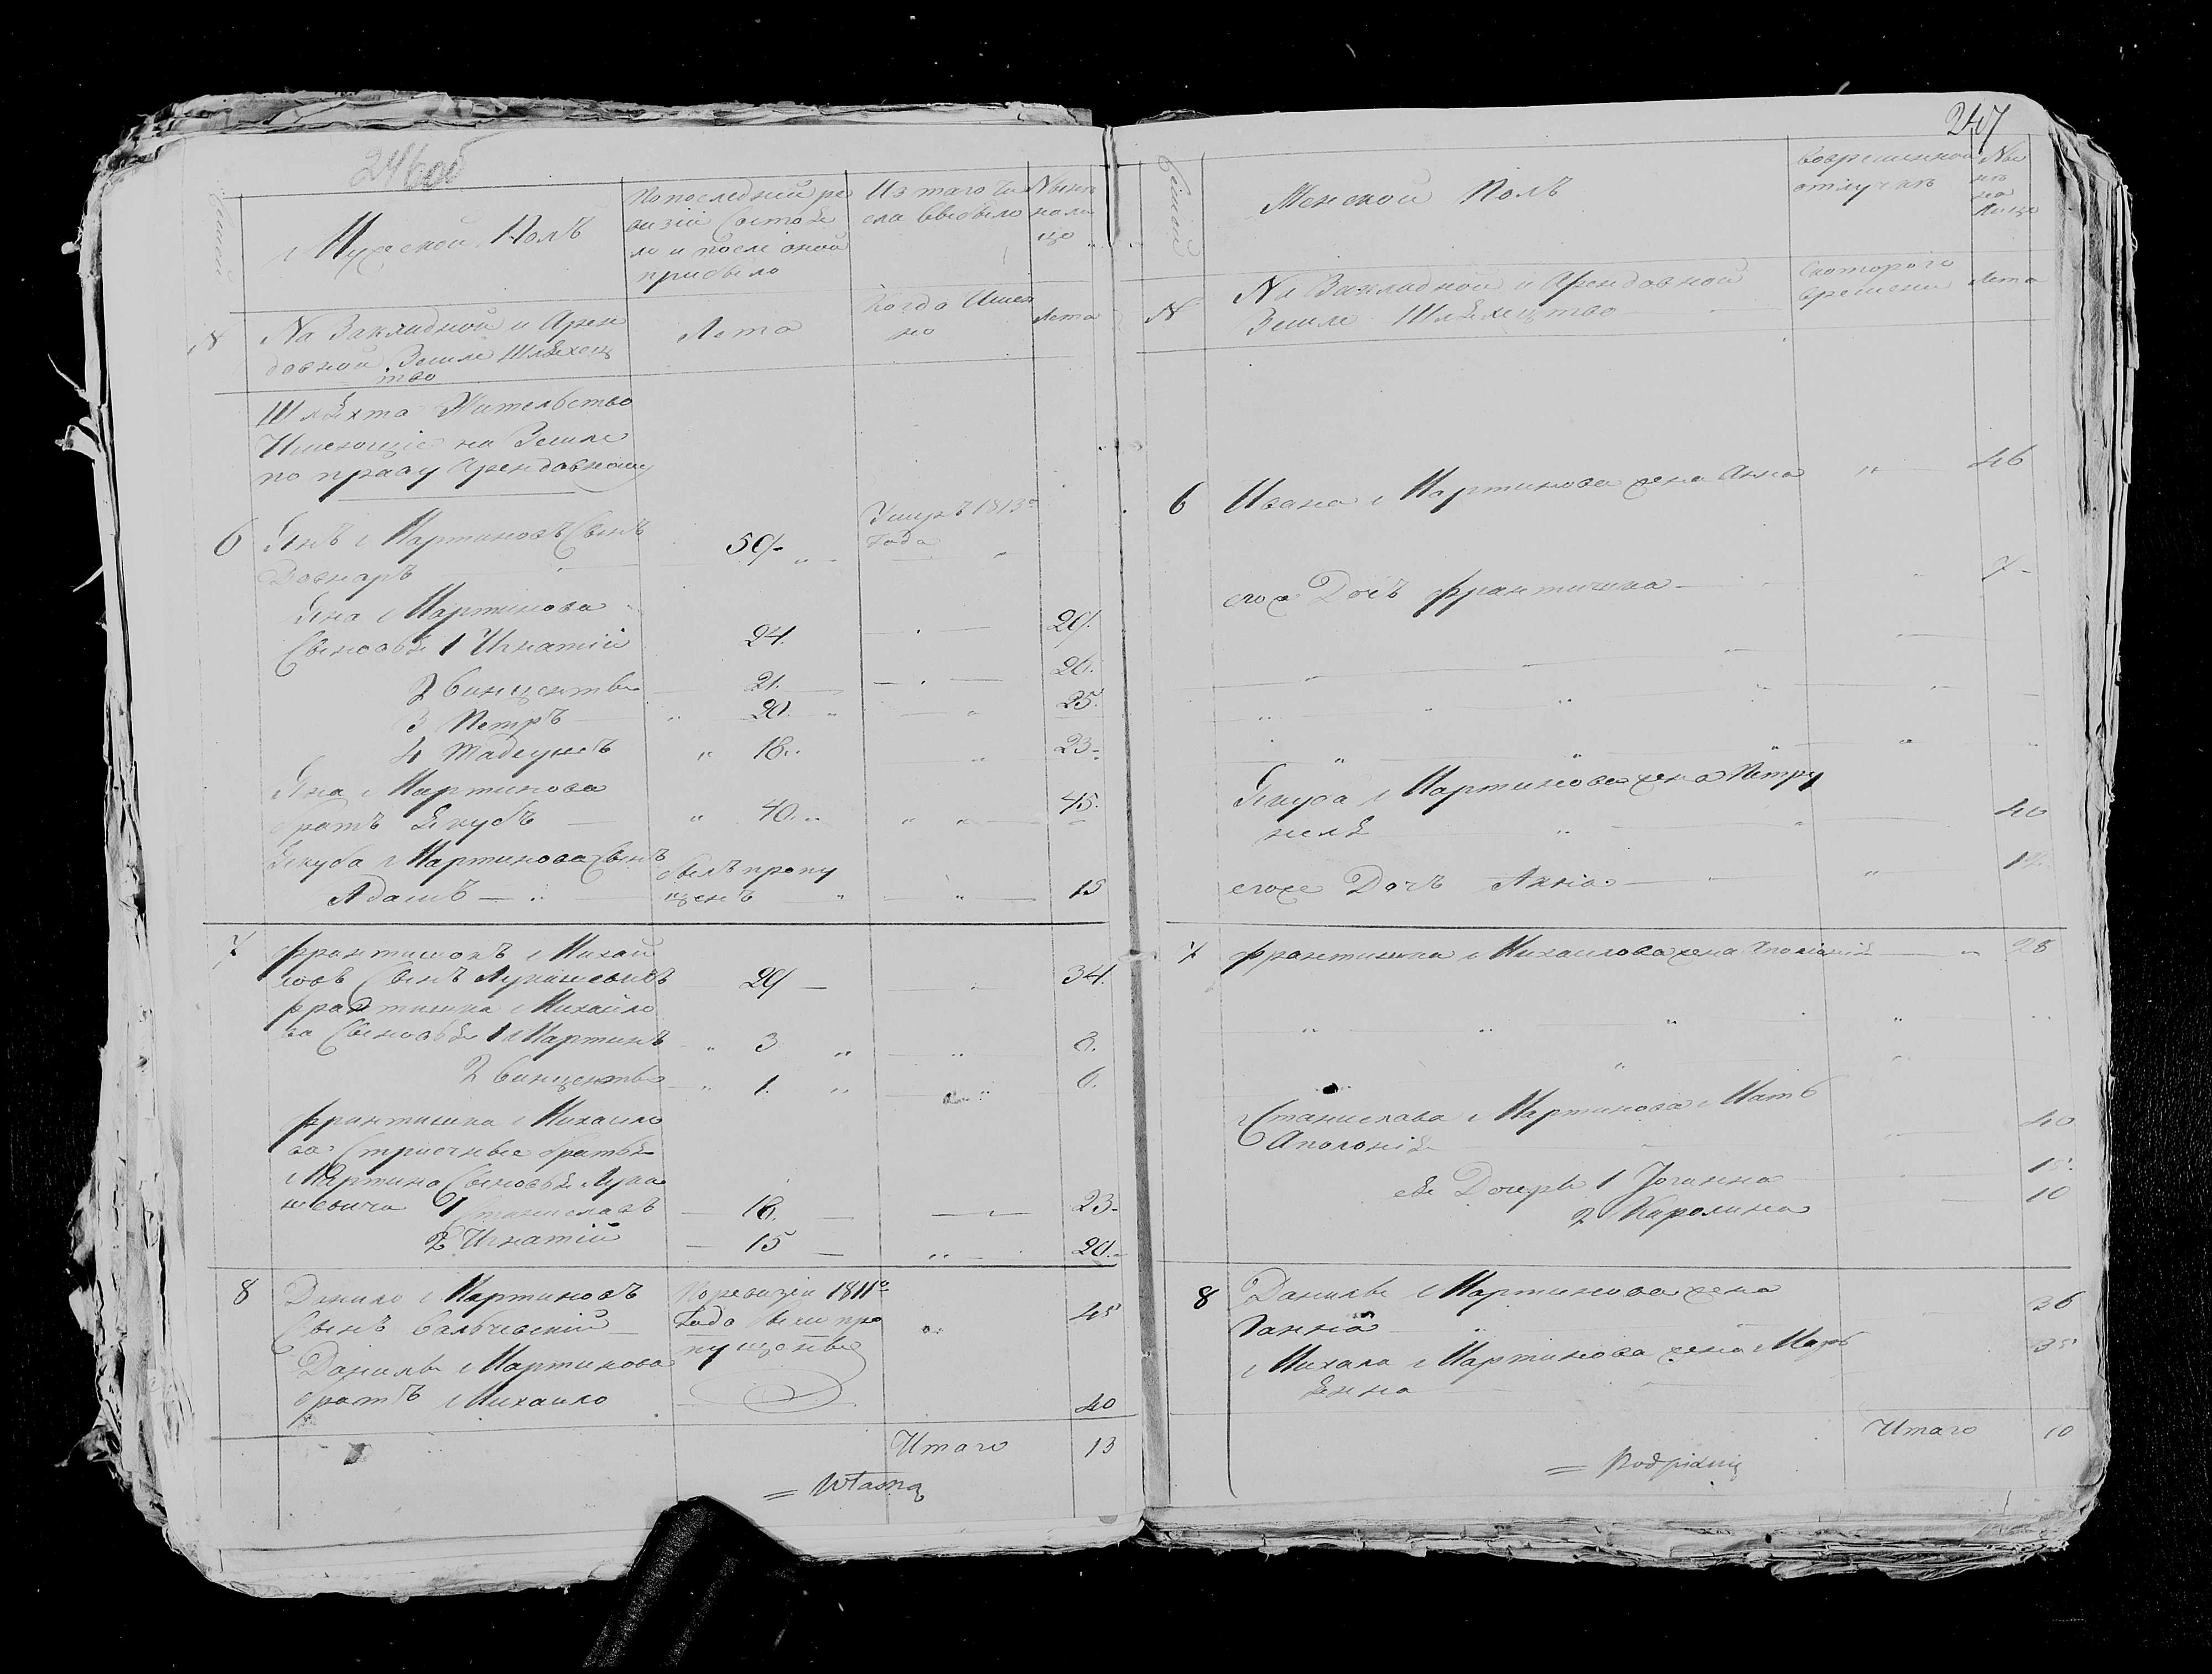 246об
Семей
Мужеской Полъ
По последней ре
визіи Состоя
ло и после оной
прибыло
Из таго Чи
сла Выбыло
Ныне
на ли
цо
N
На Закладной и Арен
довной Земле Шляхец
тво
Лета
Когда Имен
но
Лета
Шляхта Жительство
Имеющіе на Земле
по праву Арендовному
6 Янъ Мартиновъ Сынъ
Довнаръ
50
Умеръ 1813го
Года
Яна Мартинова
Сыновья 1 Игнатій 24. 29.
2 Винценты 21. 26.
3 Петръ 20. 25.
4 Тадеушъ 18. 23.
Яна Мартинова
братъ Якубъ 40. 45.
Якуба Мартинова Сынъ
Адамъ
былъ пропу
щенъ
15
7 Франтишокъ Михай
ловъ Сынъ Лукашевичъ 29 34.
Франтишка Михайло
ва Сыновья 1 Мартинъ 3 8.
2 Винценты 1. 6.
Франтишка Михайло
ва Стриечные братья
Мартина Сыновья Лука
шевича 1 Станиславъ 18. 23.
2 Игнатій 15 20.
8 Данило Мартиновъ
Сынъ Вальчевскій
По ревизіи 1811го
Года были про
пущоные
45
Данилы Мартинова
братъ Михайло 40
Итаго 13
= Własną
247
Семей
Женской Полъ
Вовременной
отлучке
Ны
не
на
Лицо
N
На Закладной и Арендовной
Земле Шляхецтво
Скоторого
времени
Лета
6 Ивана Мартинова жена Анна 46
егоже Дочъ Франтишка 7
Якуба Мартинова жена Петру
неля 40
егоже Дочъ Анна
7 Франтишка Михайлова жена 28
Станислава Мартинова Мать
Аполонія 40
ея Дочери 1 Іоганна
2 Каролина 10
8 Данилы Мартинова жена
Ганна 36
Михала Мартинова жена Марь
янна 35
Итаго 10
=